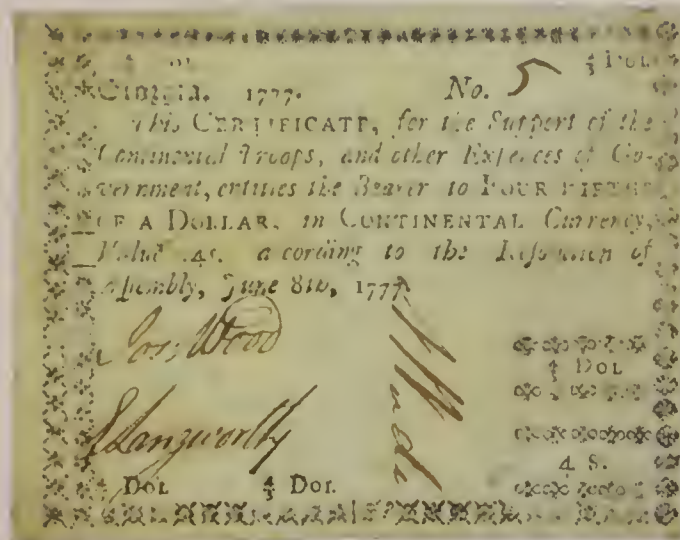 ⅘ DOL.
GEORGIA. 1777. No. 5
This CERTIFICATE, for the Support of the
Continental Troops, and other Expences of Go-
vernment, entitles the Bearer to FOUR FIFTHS
OF A DOLLAR, in CONTINENTAL Currency,
Value 4s. according to the Resolution of
Assembly, June 8th, 1777.
Jos. Wood
E Langworthy
⅘ DOL
4 S.
⅘ DOL ⅘ DOL